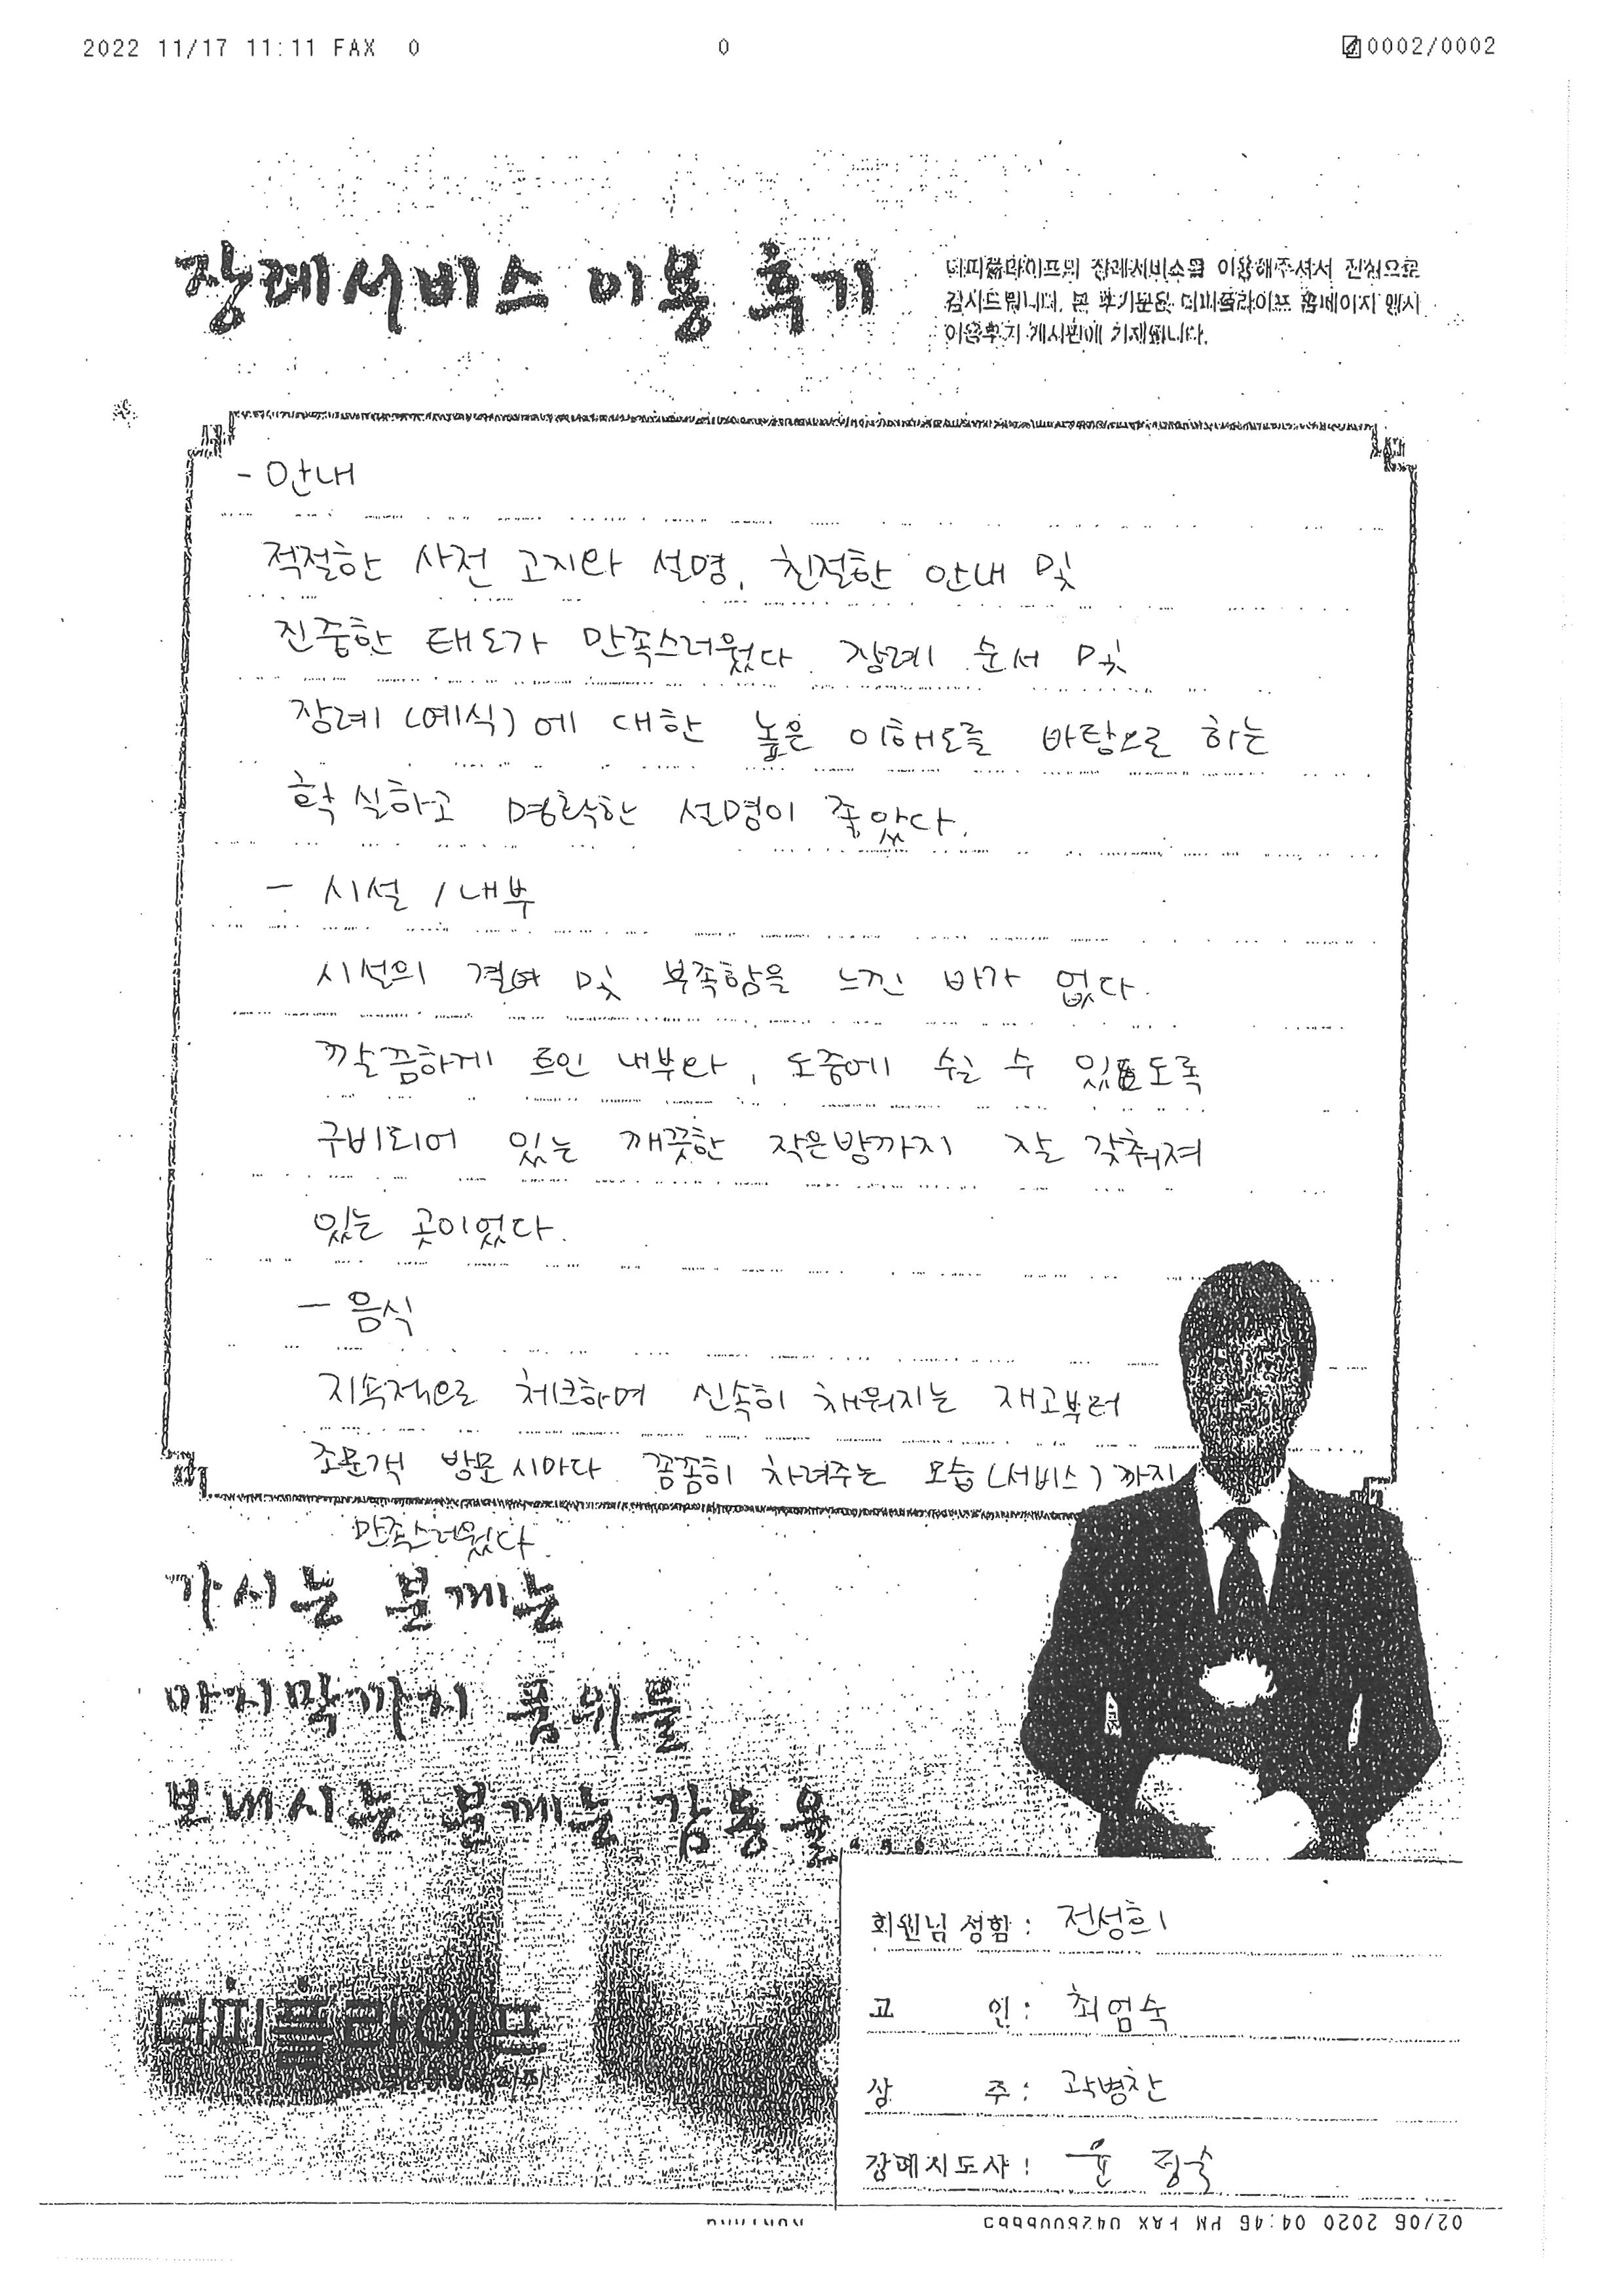 2022 11/17 11:11 FAX 0 0 0002/0002
장례서비스 이용 후기
더피플라이프의 장례서비스를 이용해주셔서 진심으로
감사드립니다. 본 후기문은 더피플라이프 홈페이지 행사
이용후기 게시판에 기재됩니다.
- 안내
적절한 사전 고지와 설명, 친절한 안내 및
진중한 태도가 만족스러웠다. 장례 순서 및
장례(예식)에 대한 높은 이해도를 바탕으로 하는
확실하고 명확한 설명이 좋았다.
- 시설/내부
시설의 결여 및 부족함을 느낀 바가 없다.
깔끔하게 트인 내부와, 도중에 쉴 수 있도록
구비되어 있는 깨끗한 작은방까지 잘 갖춰져
있는 곳이었다.
- 음식
지속적으로 체크하며 신속히 채워지는 재고부터
조문객 방문 시마다 꼼꼼히 차려주는 모습(서비스)까지
만족스러웠다.
가시는 분께는
마지막까지 품위를
보내시는 분께는 감동을...
더피플라이프
회원님 성함: 전성희
고 인: 최엄숙
상 주: 곽병찬
장례지도사: 윤 정숙
02/06 2020 04:46 PM FAX